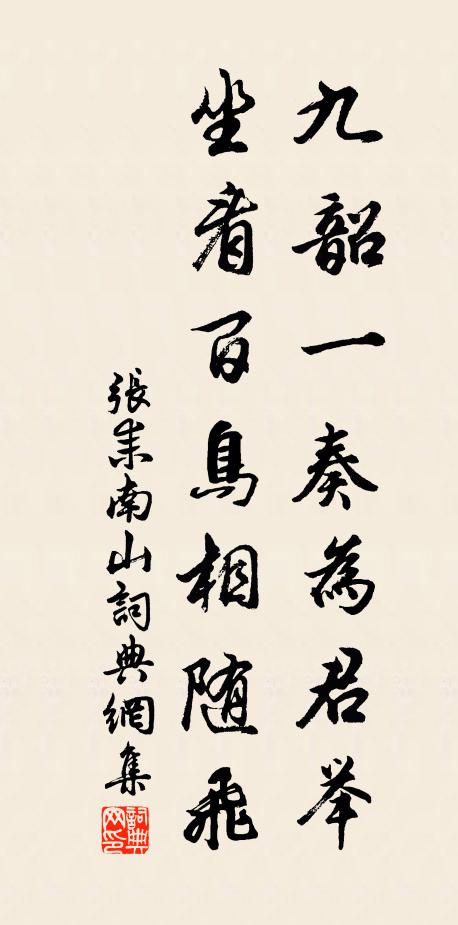 九韶一奏為君举
坐看百鳥相随飛
張耒南山詞典網集
詞典網印